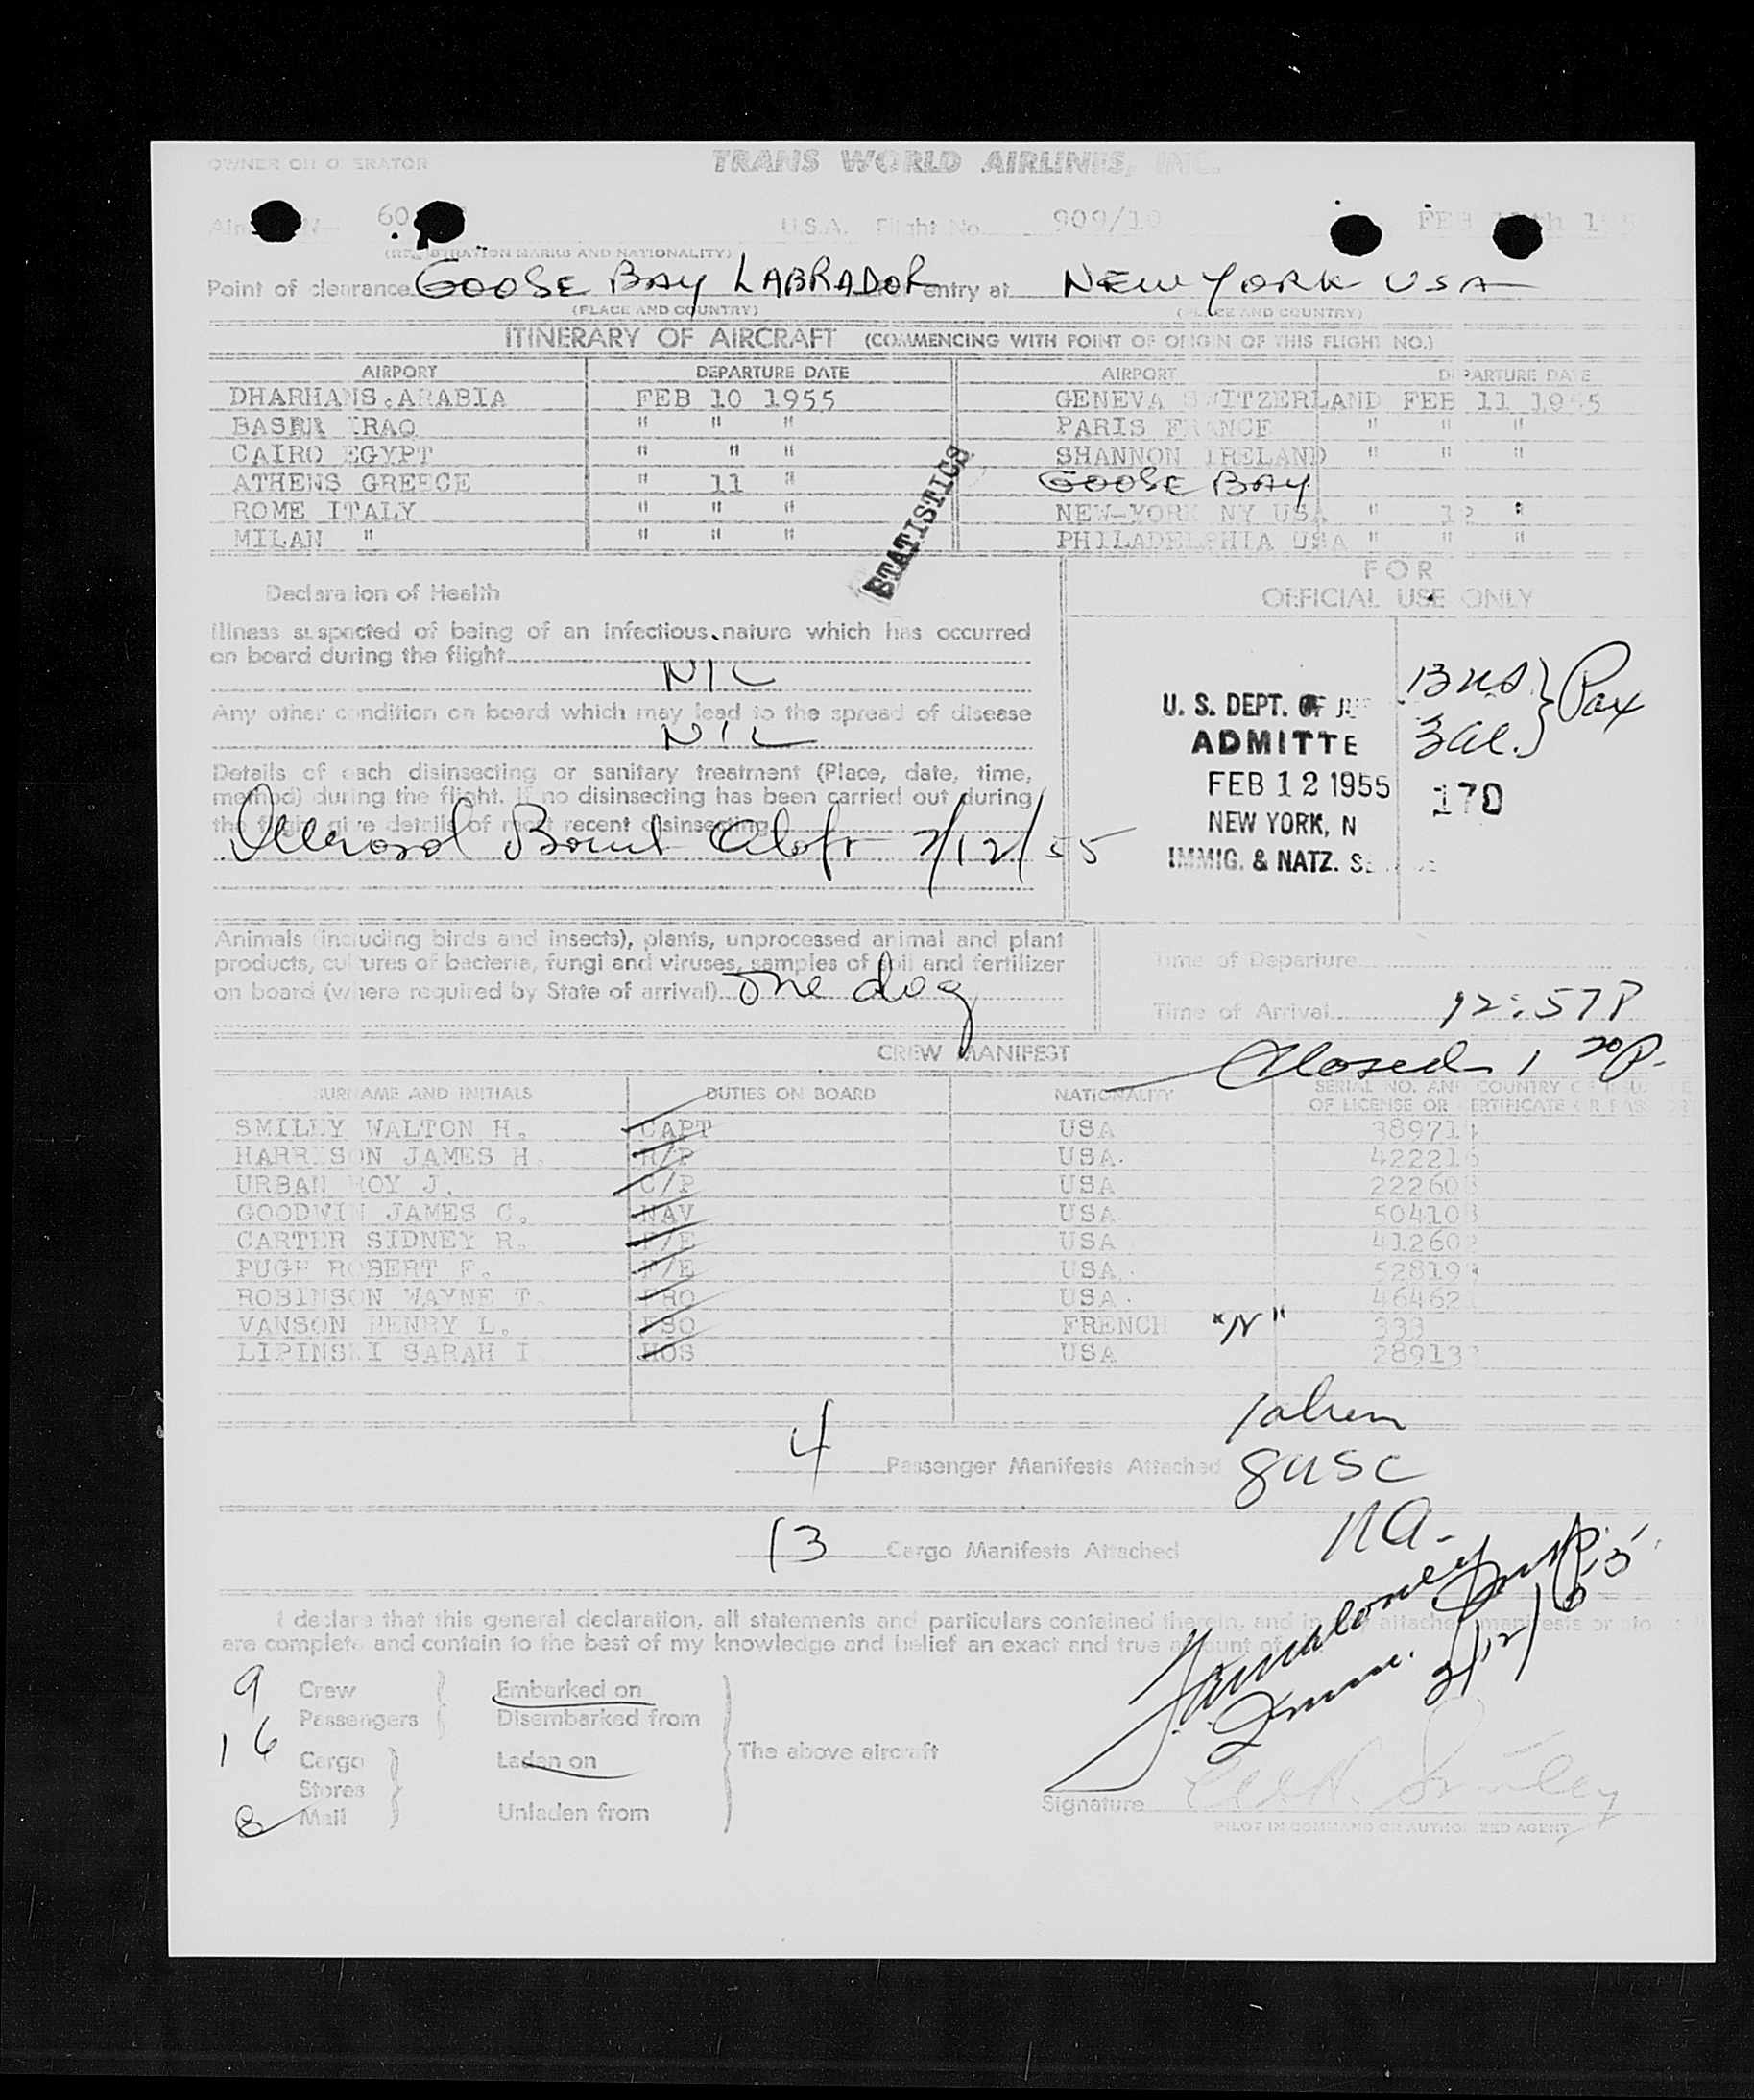 OWNER OR OPERATOR TRANS WORLD AIRLINES, INC.
60 U.S.A. Flight No. 909/10 FEB
(REGISTRATION MARKS AND NATIONALITY)
Point of clearance GOOSE BAY LABRADOR entry at NEW YORK USA
(PLACE AND COUNTRY) (PLACE AND COUNTRY)
ITINERARY OF AIRCRAFT (COMMENCING WITH POINT OF ORIGIN OF THIS FLIGHT NO.)
AIRPORT DEPARTURE DATE AIRPORT DEPARTURE DATE
DHARHAN S.ARABIA FEB 10 1955 GENEVA SWITZERLAND FEB 11 1955
BASRA IRAQ " " " PARIS FRANCE " " "
CAIRO EGYPT " " " SHANNON IRELAND " " "
ATHENS GREECE " 11 " GOOSE BAY
ROME ITALY " " " NEW-YORK NY USA " 12 "
MILAN " " " " PHILADELPHIA USA " " "
STATISTICS
Declaration of Health
FOR
OFFICIAL USE ONLY
Illness suspected of being of an infectious nature which has occurred
on board during the flight
NIL
Any other condition on board which may lead to the spread of disease
NIL
Details of each disinsecting or sanitary treatment (Place, date, time,
method) during the flight. If no disinsecting has been carried out during
the flight give details of most recent disinsecting
Aerosol Bomb Aloft 2/12/55
U. S. DEPT. OF JUS
ADMITTE
FEB 12 1955
NEW YORK, N
IMMIG. & NATZ. SE
13 USA } Pax
3 al.
170
Animals (including birds and insects), plants, unprocessed animal and plant
products, cultures of bacteria, fungi and viruses, samples of soil and fertilizer
on board (where required by State of arrival) one dog
Time of Departure
Time of Arrival 12:57P
CREW MANIFEST
Closed 1 20P.
SURNAME AND INITIALS DUTIES ON BOARD NATIONALITY SERIAL NO. AND COUNTRY OF ISSUE
OF LICENSE OR CERTIFICATE OR PASSPORT
SMILEY WALTON H. CAPT USA 389714
HARRISON JAMES H. USA. 422216
URBAN ROY J. C/P USA 222608
GOODWIN JAMES C. NAV USA. 504108
CARTER SIDNEY R. F/E USA 412602
PUGH ROBERT F. F/E USA. 52819
ROBINSON WAYNE T. USA. 46462
VANSON HENRY L. FRENCH "N" 333
LIPINSKI SARAH I HOS USA 289133
1 alien
8 USC
NA-
4 Passenger Manifests Attached
13 Cargo Manifests Attached
I declare that this general declaration, all statements and particulars contained therein, and in any attached manifests or
are complete and contain to the best of my knowledge and belief an exact and true account of
Imm. Insp.
2/12/55
9 Crew
16 Passengers
Embarked on
Disembarked from
Cargo
Stores
Mail
Laden on
Unladen from
The above aircraft
Signature W.H. Smiley
PILOT IN COMMAND OR AUTHORIZED AGENT